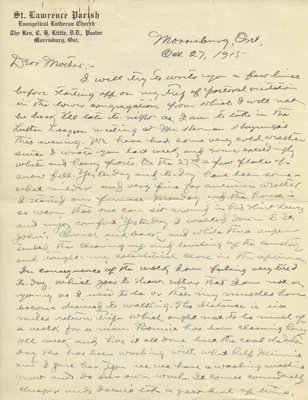 St. Lawrence Parish
Evangelical Lutheran Church
The Rev. C. H. Little, D.D., Pastor
Morrisburg, Ont.
Morrisburg, Ont,
Oct. 27, 1915.
Dear Mother:-
I will try to write you a few lines
before starting off on my trip of pastoral visitation
in the lower congregation from which I will not
be back till late to-night as I am to take in the
Luther League meeting at Mr. Herman
this evening. We have had some very cold weather
since I wrote you last week and some exceedingly
white and heavy frosts. On the 23rd a few flakes of
snow fell. Yesterday and to-day have been some-
what milder and very fine for autumn weather.
I started our furnace Monday and the house is
so warm that one can sit around in his shirt sleeves
and enjoy comfort. Yesterday I walked down to St.
John's Church and back, and while there superin-
tended the cleaning up and leveling of the cemetery
and taught my catechetical class in the afternoon.
In consequence of the walk I am feeling very tired
to-day, which goes to show either that I am not as
young as I used to be or that my muscles have
become disused to walking. The distance is
miles return trip which ought not to be much of
a walk for a man. Bonnie has been cleaning house
all week and has it all done but the coal shed to-
day. She has been working with what help Minnie
and I gave her. You see we have a washing machine
now and do our own wash. It comes considerably
cheaper and doesn't take a great deal of time,